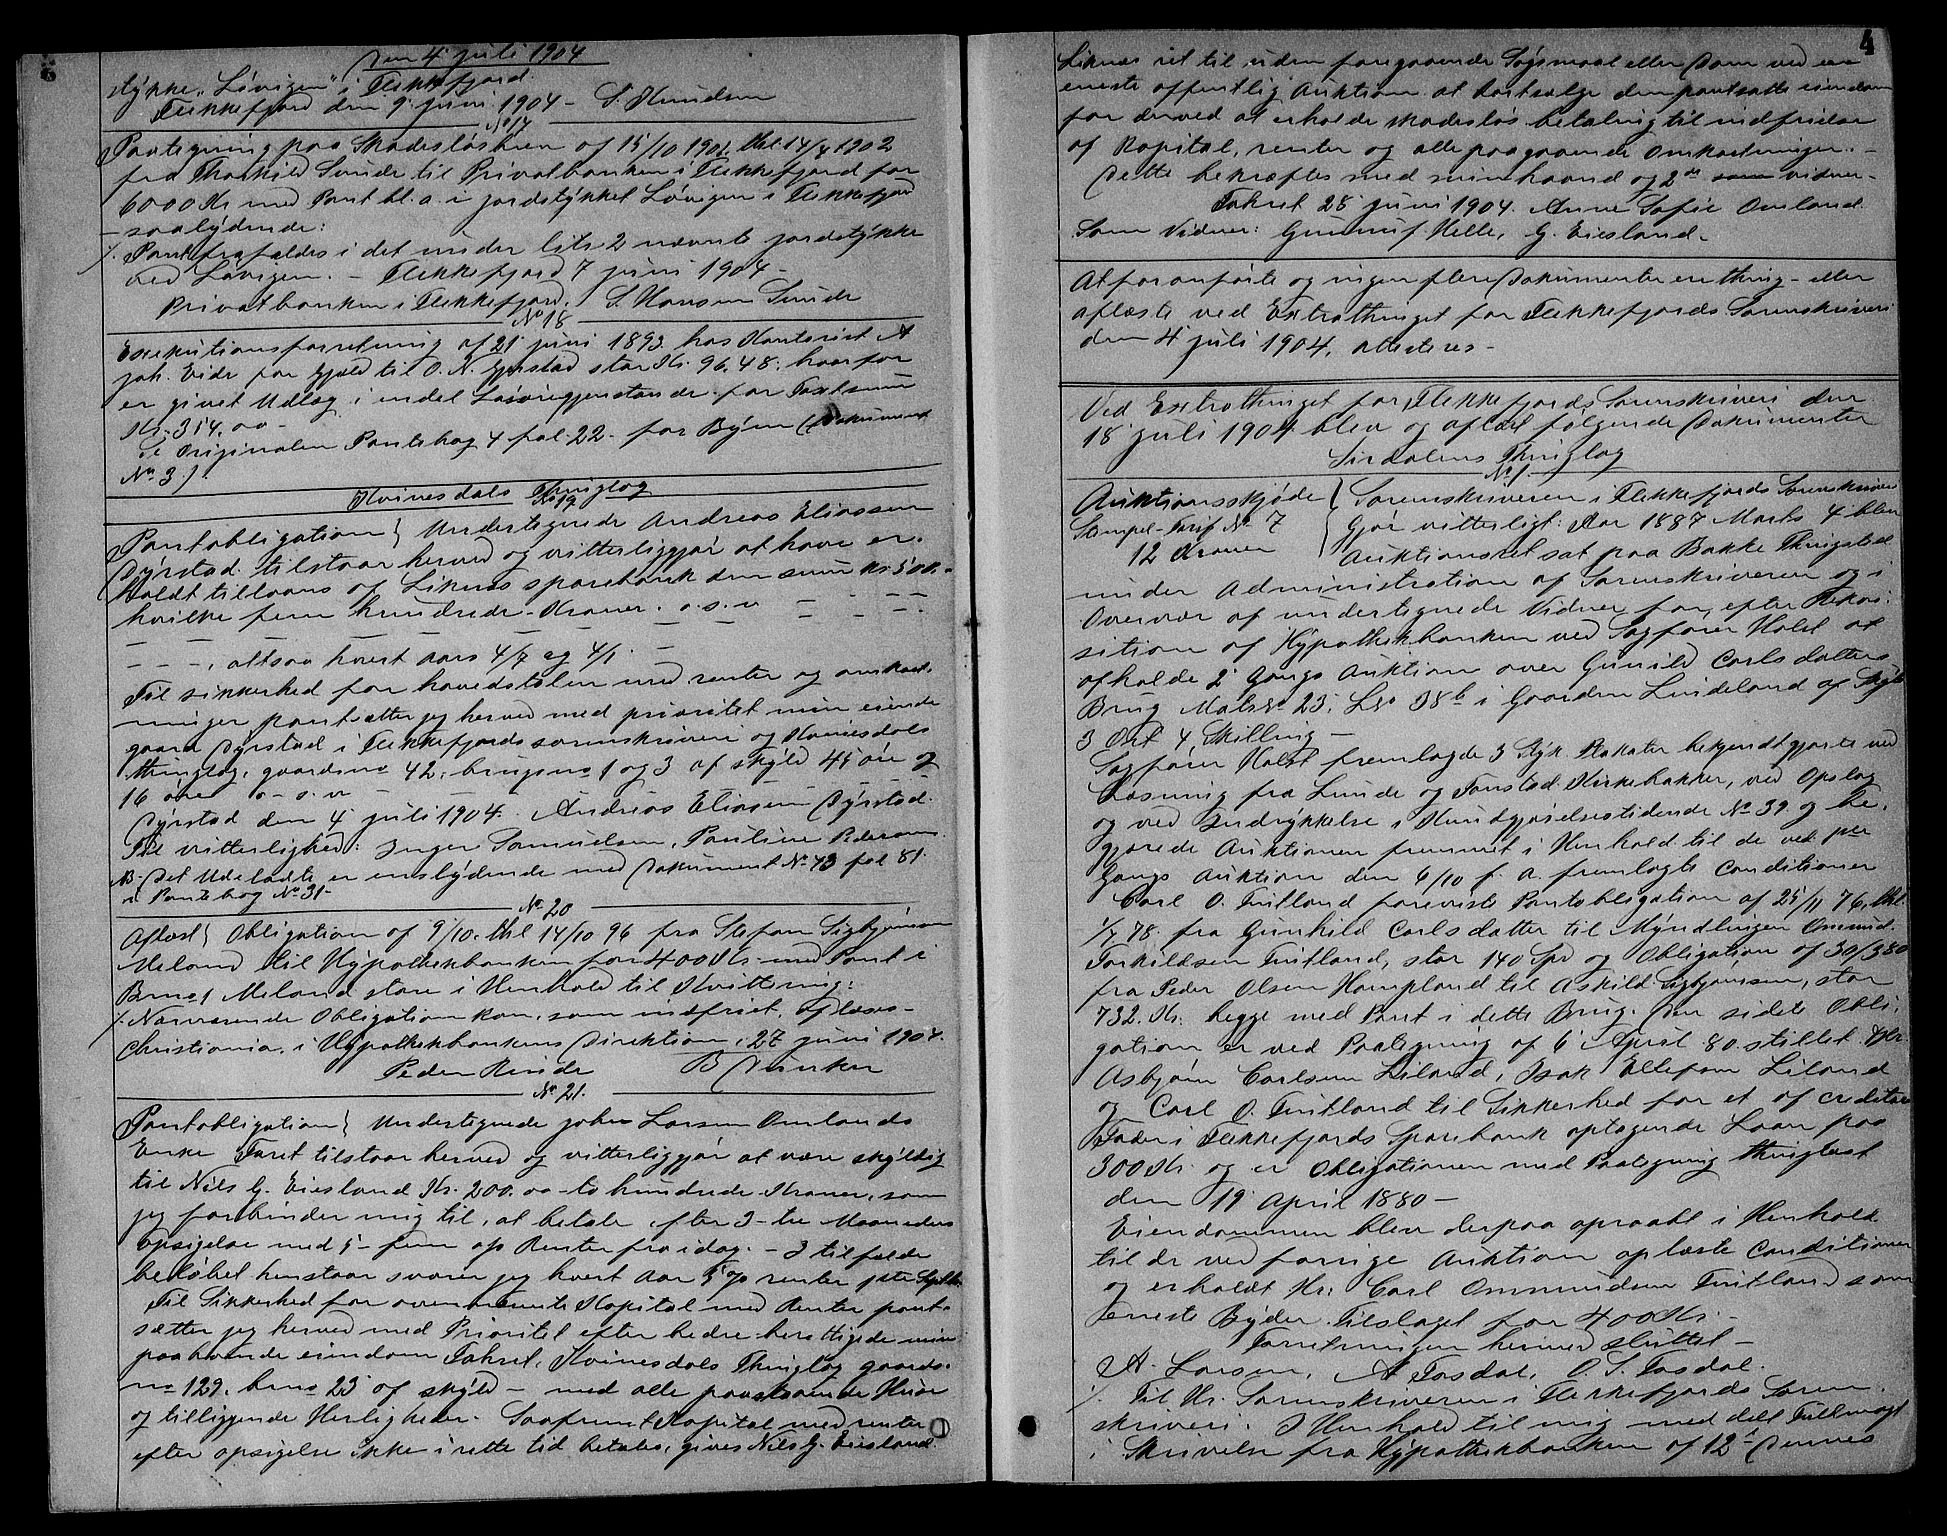 Den 4' juli 1904
stykke "Løvigen" i Flekkefjord.
Flekkefjord den 9' juni 1904 - S. Knudsen
No 17
Paategning paa Skadesløsbrev af 15/10 1901, thl. 14/4 1902
fra Thorkild Sunde til Privatbanken i Flekkefjord for
6000 Kr med Pant bl. a. i jordstykket Løvigen i Flekkefjord
saalydende:
./. Pant frafaldes i det under litr. 2 nævnte jordstykke
ved Løvigen. - Flekkefjord 7 juni 1904 -
Privatbanken i Flekkefjord. S. Hansen Sunde
No 18
Exekutionsforretning af 21' juni 1893 hos Kontorist A
Joh. Eide for Gjæld til O. N. Gyrstad stor Kr. 96,48, hvorfor
er givet Udlæg i endel Løsøregjenstande for Taxtsum
Kr. 314,00 -
Se Originalen Pantebog 4 fol. 22 - for Byen (Dokument
No 3).
Kvinesdals Thinglag
No 19
Pantobligation } Undertegnede Andreas Eliassen
Dyrstad tilstaar herved og vitterliggjør at have er-
holdt tillaans af Liknes sparebank den sum Kr. 500 -
hvilke fem hundrede Kroner. o. s. v. - - - -
- - - - - - - - - -
- - -, altsaa hvert Aars 4/7 og 4/1. -
Til sikkerhed for hovedstolen med renter og omkost-
ninger pantsætter jeg herved med prioritet min eiende
gaard Dyrstad i Flekkefjords sorenskriveri og Kvinesdals
thinglag, gaardsno 42, brugsno 1 og 3 af skyld 45 øre og
16 øre o. s. v. - - - -
Dyrstad den 4' juli 1904. Andreas Eliassen Dyrstad.
Til vitterlighed: Inger Samuelsen, Pauline Pedersen.
NB. Det Udeladte er enslydende med Dokument No 43 fol 81.
i Pantebog No 31 -
No 20
Aflæst } Obligation af 9/10 thl 14/10 96 fra Stefan Sigbjørnsen
Meland til Hypothekbanken for 400 Kr. med Pant i
Brno 1 Meland støre i Henhold til Kvittering:
./. Nærværende Obligation kan, som indfriet, aflæses -
Christiania, i Hypothekbankens Direktion, 27 juni 1904.
Peder Rinde B Dunker
No 21.
Pantobligation } Undertegnede Johan Larsen Omlands
Enke Færet tilstaar herved og vitterliggjør at være skyldig
til Nils G. Eiesland Kr. 200.00 - to hundrede Kroner, som
jeg forbinder mig til, at betale efter 3 - tre Maaneders
opsigelse med 5 - fem op Renter fra idag. - I tilfælde
beløbet henstaar svarer jeg hvert Aar 5 op renter pr
Til Sikkerhed for ovennævnte Kapital med Renter pant-
sætter jeg herved med Prioritet efter bedre berettigede min
paaboende eiendom Fahret, Kvinesdals Thinglag gaards-
no 129, brno 23 af skyld - med alle paastaaende Huse
og tilliggende Herligheder. Saafremt Kapital med renter
efter opsigelse ikke i rette tid betales, gives Nils G. Eiesland

4
Liknes ret til uden foregaaende Søgsmaal eller Dom ved en
eneste offentlig Auktion at bortsælge den pantsatte eiendom
for derved at erholde skadesløs betaling til indfrielse
af Kapital, renter og alle paagaaende Omkostninger. -
Dette bekræftes med min haand og 2de vidner -
Fahret 28' juni 1904. Anne Sofie Omland.
Som Vidner: Gunnuf Helle, G. Eiesland -
At foranførte og ingen flere Dokumenter ere thing- eller
aflæste ved Extrathinget for Flekkefjords Sorenskriveri
den 4' juli 1904, attesteres -
Ved Extrathinget for Flekkefjords Sorenskriveri den
18' juli 1904 blev og aflæst følgende Dokumenter
Sirdalens Thinglag
No 1.
Auktionsskjøde } Sorenskriveren i Flekkefjords Sorenskriveri
Stempel-Tarif No 7 Gjør vitterligt: Aar 1887 Marts 4 blev
12 Kroner Auktionsret sat paa Bakke Thingsted
under Administration af Sorenskriveren og i
Overvær af undertegnede Vidner for, efter Rekvi-
sition af Hypothekbanken ved Sagfører Holst at
afholde 2' Gangs Auktion over Gunild Carlsdatters
Brug Matr No 23, Lno 38b i Gaarden Lindeland af Skyld
3 Ort 4 Skilling -
Sagfører Holst fremlagde 3 Styk Plakater bekjendtgjorte ved
Læsning fra Lunde og Tonstad Kirkebakker, ved Opslag
og ved Indrykkelse i Kundgjørelsestidende No 39 og be-
gjærede Auktionen fremmet i Henhold til de ved 1ste
Gangs Auktion den 6/10 f. A. fremlagte Conditioner
Carl O. Tritland foreviste Pantobligation af 25/11 76, thl.
1/7 78 fra Gunhild Carlsdatter til Myndlingen Ommund
Torkildsen Tritland, stor 140 Spd og Obligation af 30/3 80
fra Peder Olsen Haupland til Askild Sigbjørnsen, stor
732 Kr. begge med Pant i dette Brug. Den sidste Obli-
gation er ved Paategning af 6' April 80 stillet Hr.
Asbjørn Carlsen Liland, Isak Ellefsen Liland
og Carl O. Tritland til Sikkerhed for et af
i Flekkefjords Sparebank optagende Laan paa
300 Kr. og er Obligationen med Paategning thinglæst
den 19' April 1880 -
Eiendommen blev derpaa opraabt i Henhold
til de ved forrige Auktion oplæste Conditioner
og erholdt Hr. Carl Ommundsen Tritland som
eneste Byder Tilslaget for 400 Kr -
Forretningen hermed sluttet -
A. Larsen, A Tosdal, O. S. Tosdal.
./. Til Hr. Sorenskriveren i Flekkefjords Soren-
skriveri. I Henhold til mig med delt Fuldmagt
i Skrivelse fra Hypothekbanken af 12' Dennes